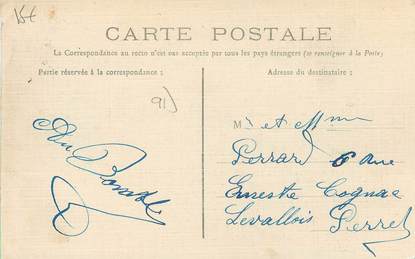 15€
CARTE POSTALE
La Correspondance au recto n'est pas acceptée par tous les pays étrangers (se renseigner à la Poste)
Partie réservée à la correspondance :
Adresse du destinataire :
91)
M. et Mme
Perrard 6 rue
Erneste Cognac
Levallois Perret